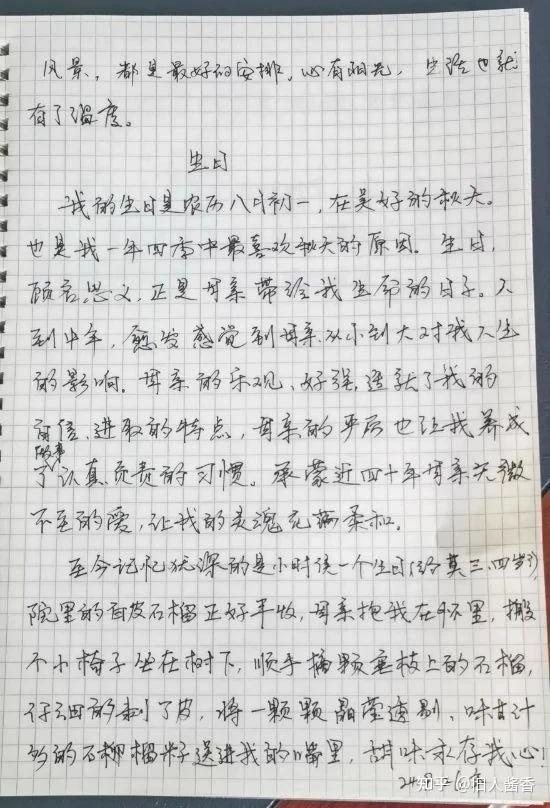 风景，都是最好的安排，心有阳光，生活也就
有了温度。
生日
我的生日是农历八月初一，在美好的秋天。
也是我一年四季中最喜欢秋天的原因。生日，
顾名思义，正是母亲带给我生命的日子。人
到中年，愈发感觉到母亲从小到大对我人生
的影响。母亲的乐观、好强，造就了我的
自信、进取的特点，母亲的严厉也让我养成
了做事认真负责的习惯。承蒙近四十年母亲无微
不至的爱，让我的灵魂充满柔和。
至今记忆犹深的是小时候一个生日（约莫三、四岁），
院里的面皮石榴正好丰收，母亲抱我在怀里，搬
个小椅子坐在树下，顺手摘颗垂枝上的石榴，
仔细的剥了皮，将一颗颗晶莹透剔、味甘汁
多的石榴籽送进我的嘴里，甜味永存我心！
知乎 @阳人酱香